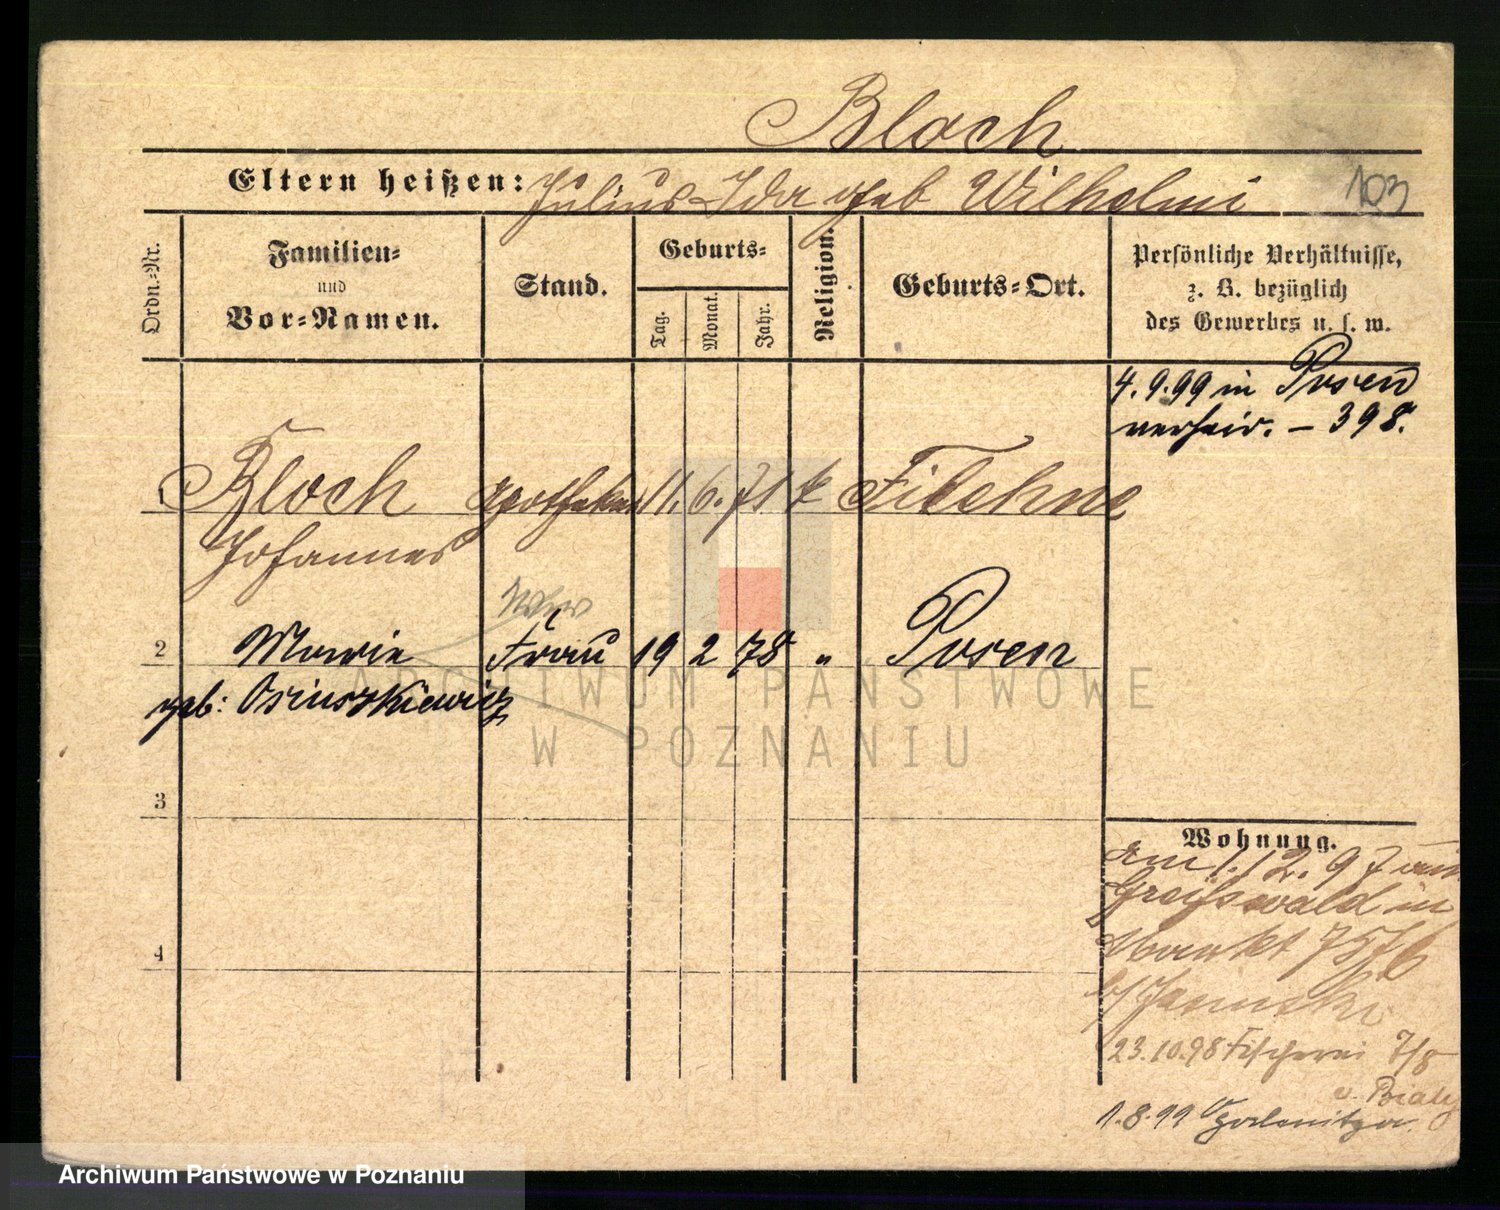 Bloch
Eltern heißen: Julius Ida geb Wilhelmi 103
Ordn.-Nr. Familien- und Vor-Namen. Stand. Geburts- Tag. Monat. Jahr. Religion. Geburts-Ort. Persönliche Verhältnisse, z. B. bezüglich des Gewerbes u. s. w.
4. 9. 99 in Posen
verheir. – 398.
1 Bloch Apotheker 11. 6. 71 k Filehne
Johannes
Wwe
2 Marie Frau 19 2 78 " Posen
geb: Osinszkiewicz
ARCHIWUM PAŃSTWOWE
W POZNANIU
3
Wohnung.
am 1. 12. 97 von
Greifswald in
4
Markt 75/76
b/
23. 10. 98 Fischerei 7/8
1. 8. 99
Archiwum Państwowe w Poznaniu